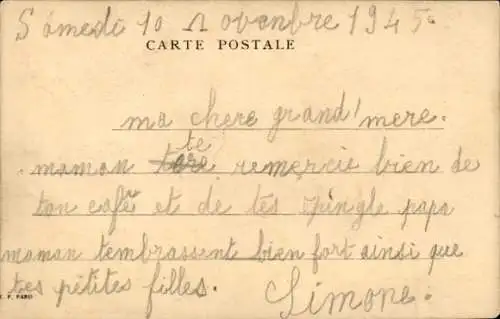 Samedi 10 Novembre 1945.
CARTE POSTALE
ma chere grand'mere.
te
maman remercie bien de
ton café et de tes epingle papa
maman tembrassent bien fort ainsi que
tes pétites filles. Simone.
E. P. PARIS